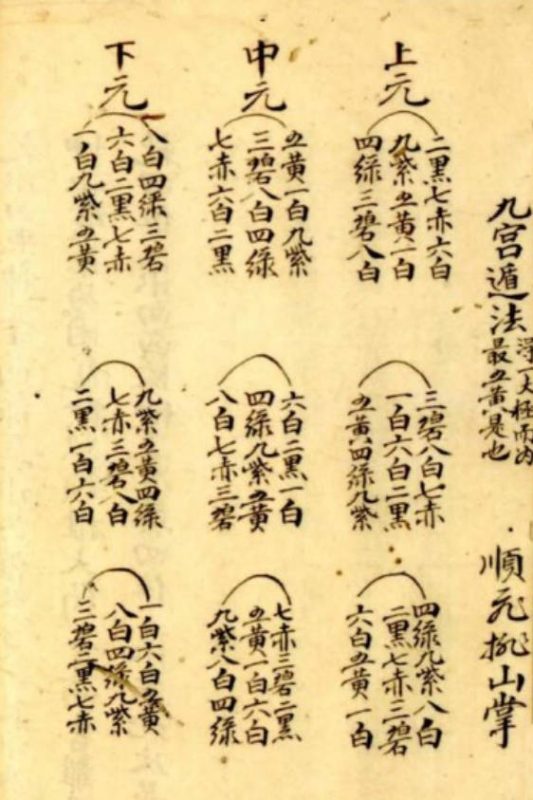 九宮遁法
一大極而内
最五黄是也
順飛排山掌
上元
二黑七赤六白
九紫五黄一白
四緑三碧八白
三碧八白七赤
一白六白二黑
五黄四緑九紫
四緑九紫八白
二黑七赤三碧
六白五黄一白
中元
五黄一白九紫
三碧八白四緑
七赤六白二黑
六白二黑一白
四緑九紫五黄
八白七赤三碧
七赤三碧二黑
五黄一白六白
九紫八白四緑
下元
八白四緑三碧
六白二黑七赤
一白九紫五黄
九紫五黄四緑
七赤三碧八白
二黑一白六白
一白六白五黄
八白四緑九紫
三碧二黑七赤